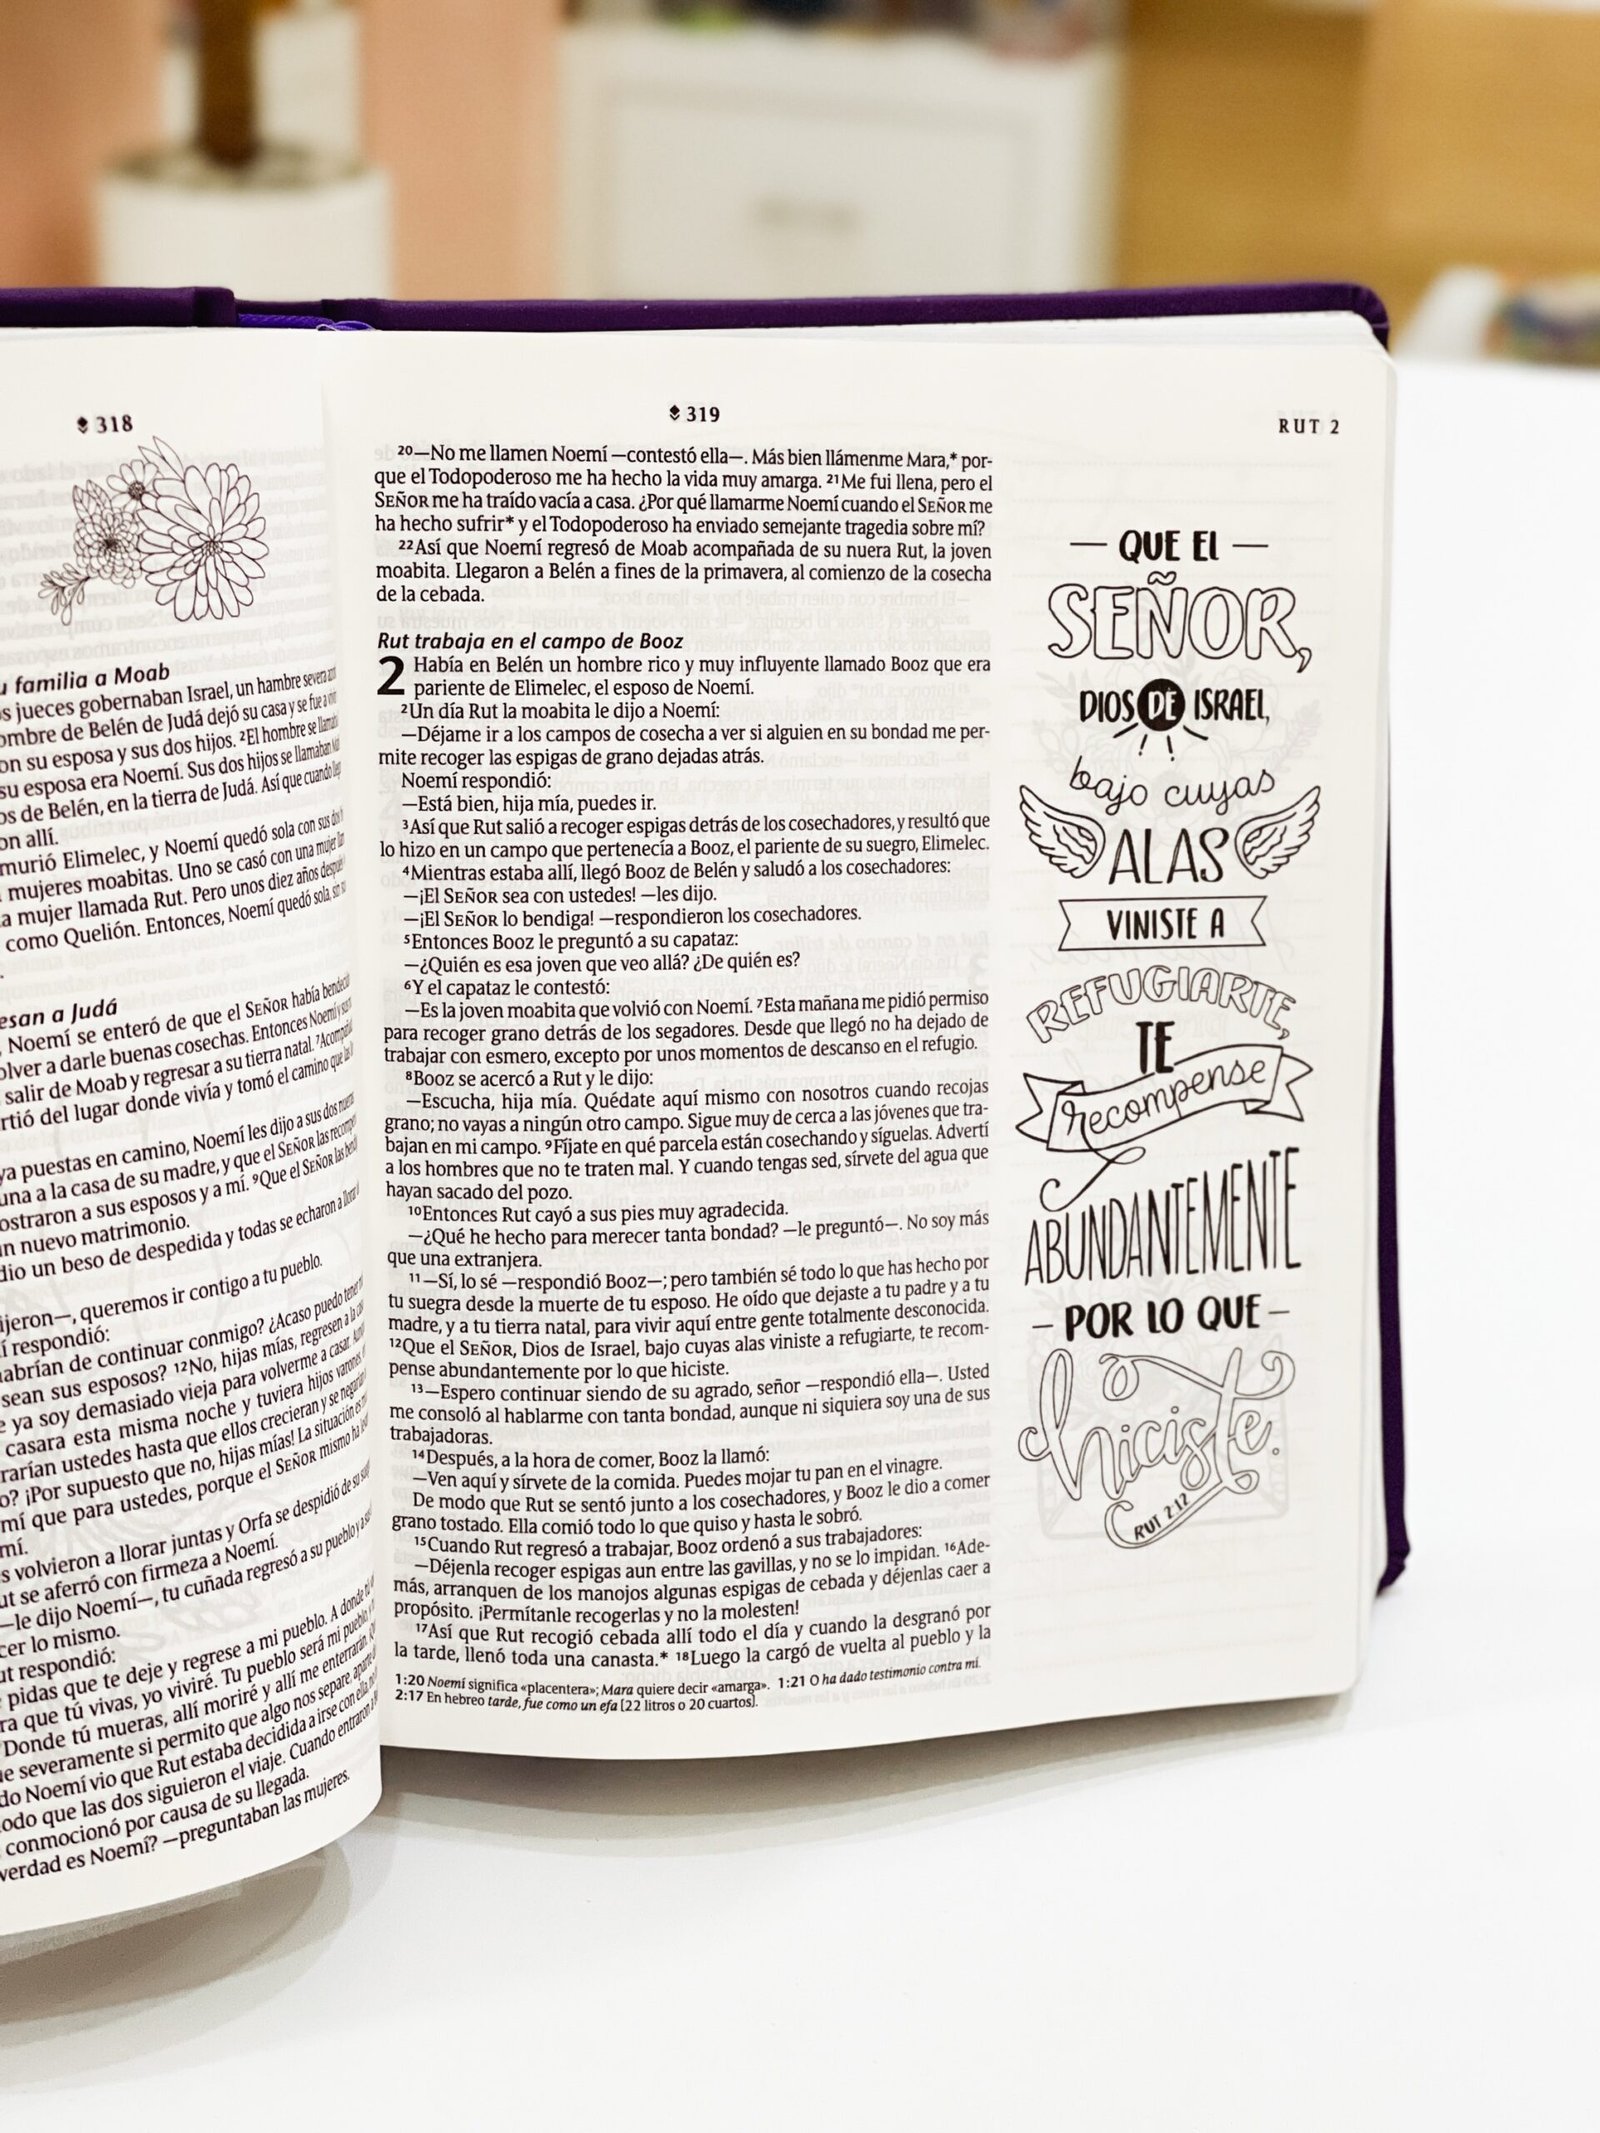 318
u familia a Moab
s jueces gobernaban Israel, un hambre severa
ombre de Belén de Judá dejó su casa y se fue a
on su esposa y sus dos hijos. ²El hombre se
su esposa era Noemí. Sus dos hijos se llamaban
os de Belén, en la tierra de Judá. Así que cuando
on allí.
murió Elimelec, y Noemí quedó sola con sus
mujeres moabitas. Uno se casó con una mujer
a mujer llamada Rut. Pero unos diez años
como Quelión. Entonces, Noemí quedó sola,
.
esan a Judá
, Noemí se enteró de que el SEÑOR había
olver a darle buenas cosechas. Entonces Noemí
salir de Moab y regresar a su tierra natal.
rtió del lugar donde vivía y tomó el camino que
ya puestas en camino, Noemí les dijo a sus dos
una a la casa de su madre, y que el SEÑOR las
ostraron a sus esposos y a mí. ⁹Que el SEÑOR las
n nuevo matrimonio.
dio un beso de despedida y todas se echaron a
ijeron—, queremos ir contigo a tu pueblo.
í respondió:
abrían de continuar conmigo? ¿Acaso puedo
sean sus esposos? ¹²No, hijas mías, regresen a
e ya soy demasiado vieja para volverme a casar.
casara esta misma noche y tuviera hijos varones,
rarían ustedes hasta que ellos crecieran y se
o? ¡Por supuesto que no, hijas mías! La situación
mí que para ustedes, porque el SEÑOR mismo
mí.
s volvieron a llorar juntas y Orfa se despidió de su
ut se aferró con firmeza a Noemí.
—le dijo Noemí—, tu cuñada regresó a su pueblo y a
cer lo mismo.
ut respondió:
pidas que te deje y regrese a mi pueblo. A donde
ra que tú vivas, yo viviré. Tu pueblo será mi pueblo,
Donde tú mueras, allí moriré y allí me enterrarán.
ue severamente si permito que algo nos separe,
do Noemí vio que Rut estaba decidida a irse con ella,
odo que las dos siguieron el viaje. Cuando entraron
conmocionó por causa de su llegada.
verdad es Noemí? —preguntaban las mujeres.
319
RUT 2
²⁰—No me llamen Noemí —contestó ella—. Más bien llámenme Mara,* por-
que el Todopoderoso me ha hecho la vida muy amarga. ²¹Me fui llena, pero el
SEÑOR me ha traído vacía a casa. ¿Por qué llamarme Noemí cuando el SEÑOR me
ha hecho sufrir* y el Todopoderoso ha enviado semejante tragedia sobre mí?
²²Así que Noemí regresó de Moab acompañada de su nuera Rut, la joven
moabita. Llegaron a Belén a fines de la primavera, al comienzo de la cosecha
de la cebada.
Rut trabaja en el campo de Booz
2 Había en Belén un hombre rico y muy influyente llamado Booz que era
pariente de Elimelec, el esposo de Noemí.
²Un día Rut la moabita le dijo a Noemí:
—Déjame ir a los campos de cosecha a ver si alguien en su bondad me per-
mite recoger las espigas de grano dejadas atrás.
Noemí respondió:
—Está bien, hija mía, puedes ir.
³Así que Rut salió a recoger espigas detrás de los cosechadores, y resultó que
lo hizo en un campo que pertenecía a Booz, el pariente de su suegro, Elimelec.
⁴Mientras estaba allí, llegó Booz de Belén y saludó a los cosechadores:
—¡El SEÑOR sea con ustedes! —les dijo.
—¡El SEÑOR lo bendiga! —respondieron los cosechadores.
⁵Entonces Booz le preguntó a su capataz:
—¿Quién es esa joven que veo allá? ¿De quién es?
⁶Y el capataz le contestó:
—Es la joven moabita que volvió con Noemí. ⁷Esta mañana me pidió permiso
para recoger grano detrás de los segadores. Desde que llegó no ha dejado de
trabajar con esmero, excepto por unos momentos de descanso en el refugio.
⁸Booz se acercó a Rut y le dijo:
—Escucha, hija mía. Quédate aquí mismo con nosotros cuando recojas
grano; no vayas a ningún otro campo. Sigue muy de cerca a las jóvenes que tra-
bajan en mi campo. ⁹Fíjate en qué parcela están cosechando y síguelas. Advertí
a los hombres que no te traten mal. Y cuando tengas sed, sírvete del agua que
hayan sacado del pozo.
¹⁰Entonces Rut cayó a sus pies muy agradecida.
—¿Qué he hecho para merecer tanta bondad? —le preguntó—. No soy más
que una extranjera.
¹¹—Sí, lo sé —respondió Booz—; pero también sé todo lo que has hecho por
tu suegra desde la muerte de tu esposo. He oído que dejaste a tu padre y a tu
madre, y a tu tierra natal, para vivir aquí entre gente totalmente desconocida.
¹²Que el SEÑOR, Dios de Israel, bajo cuyas alas viniste a refugiarte, te recom-
pense abundantemente por lo que hiciste.
¹³—Espero continuar siendo de su agrado, señor —respondió ella—. Usted
me consoló al hablarme con tanta bondad, aunque ni siquiera soy una de sus
trabajadoras.
¹⁴Después, a la hora de comer, Booz la llamó:
—Ven aquí y sírvete de la comida. Puedes mojar tu pan en el vinagre.
De modo que Rut se sentó junto a los cosechadores, y Booz le dio a comer
grano tostado. Ella comió todo lo que quiso y hasta le sobró.
¹⁵Cuando Rut regresó a trabajar, Booz ordenó a sus trabajadores:
—Déjenla recoger espigas aun entre las gavillas, y no se lo impidan. ¹⁶Ade-
más, arranquen de los manojos algunas espigas de cebada y déjenlas caer a
propósito. ¡Permítanle recogerlas y no la molesten!
¹⁷Así que Rut recogió cebada allí todo el día y cuando la desgranó por
la tarde, llenó toda una canasta.* ¹⁸Luego la cargó de vuelta al pueblo y la
1:20 Noemí significa «placentera»; Mara quiere decir «amarga». 1:21 O ha dado testimonio contra mí.
2:17 En hebreo tarde, fue como un efa [22 litros o 20 cuartos].
— QUE El —
SEÑOR,
DIOS DE ISRAEl,
bajo cuyas
ALAS
VINISTE A
REFUGIARTE,
TE
recompense
ABUNDANTEMENTE
— POR lO QUE —
hiciste.
RUT 2:12